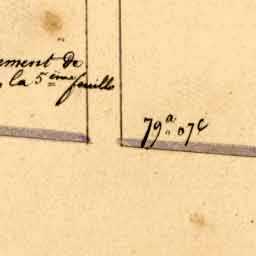 ement de
la 5ème feuille
79a 07c